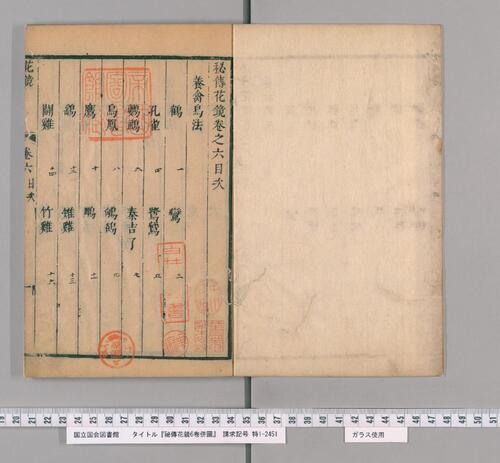 秘傳花鏡卷之六目次
養禽鳥法
鶴 一 鸞 二
孔雀 四 鷺鷥 五
鸚鵡 六 秦吉了 七
烏鳳 八 鴝鵒
鷹 十
雉雞 十三
鬪雞 十四 竹雞 十六
花鏡 卷六目次
国立国会図書館 タイトル『秘傳花鏡6巻併圖』 請求記号 特1-2451
ガラス使用